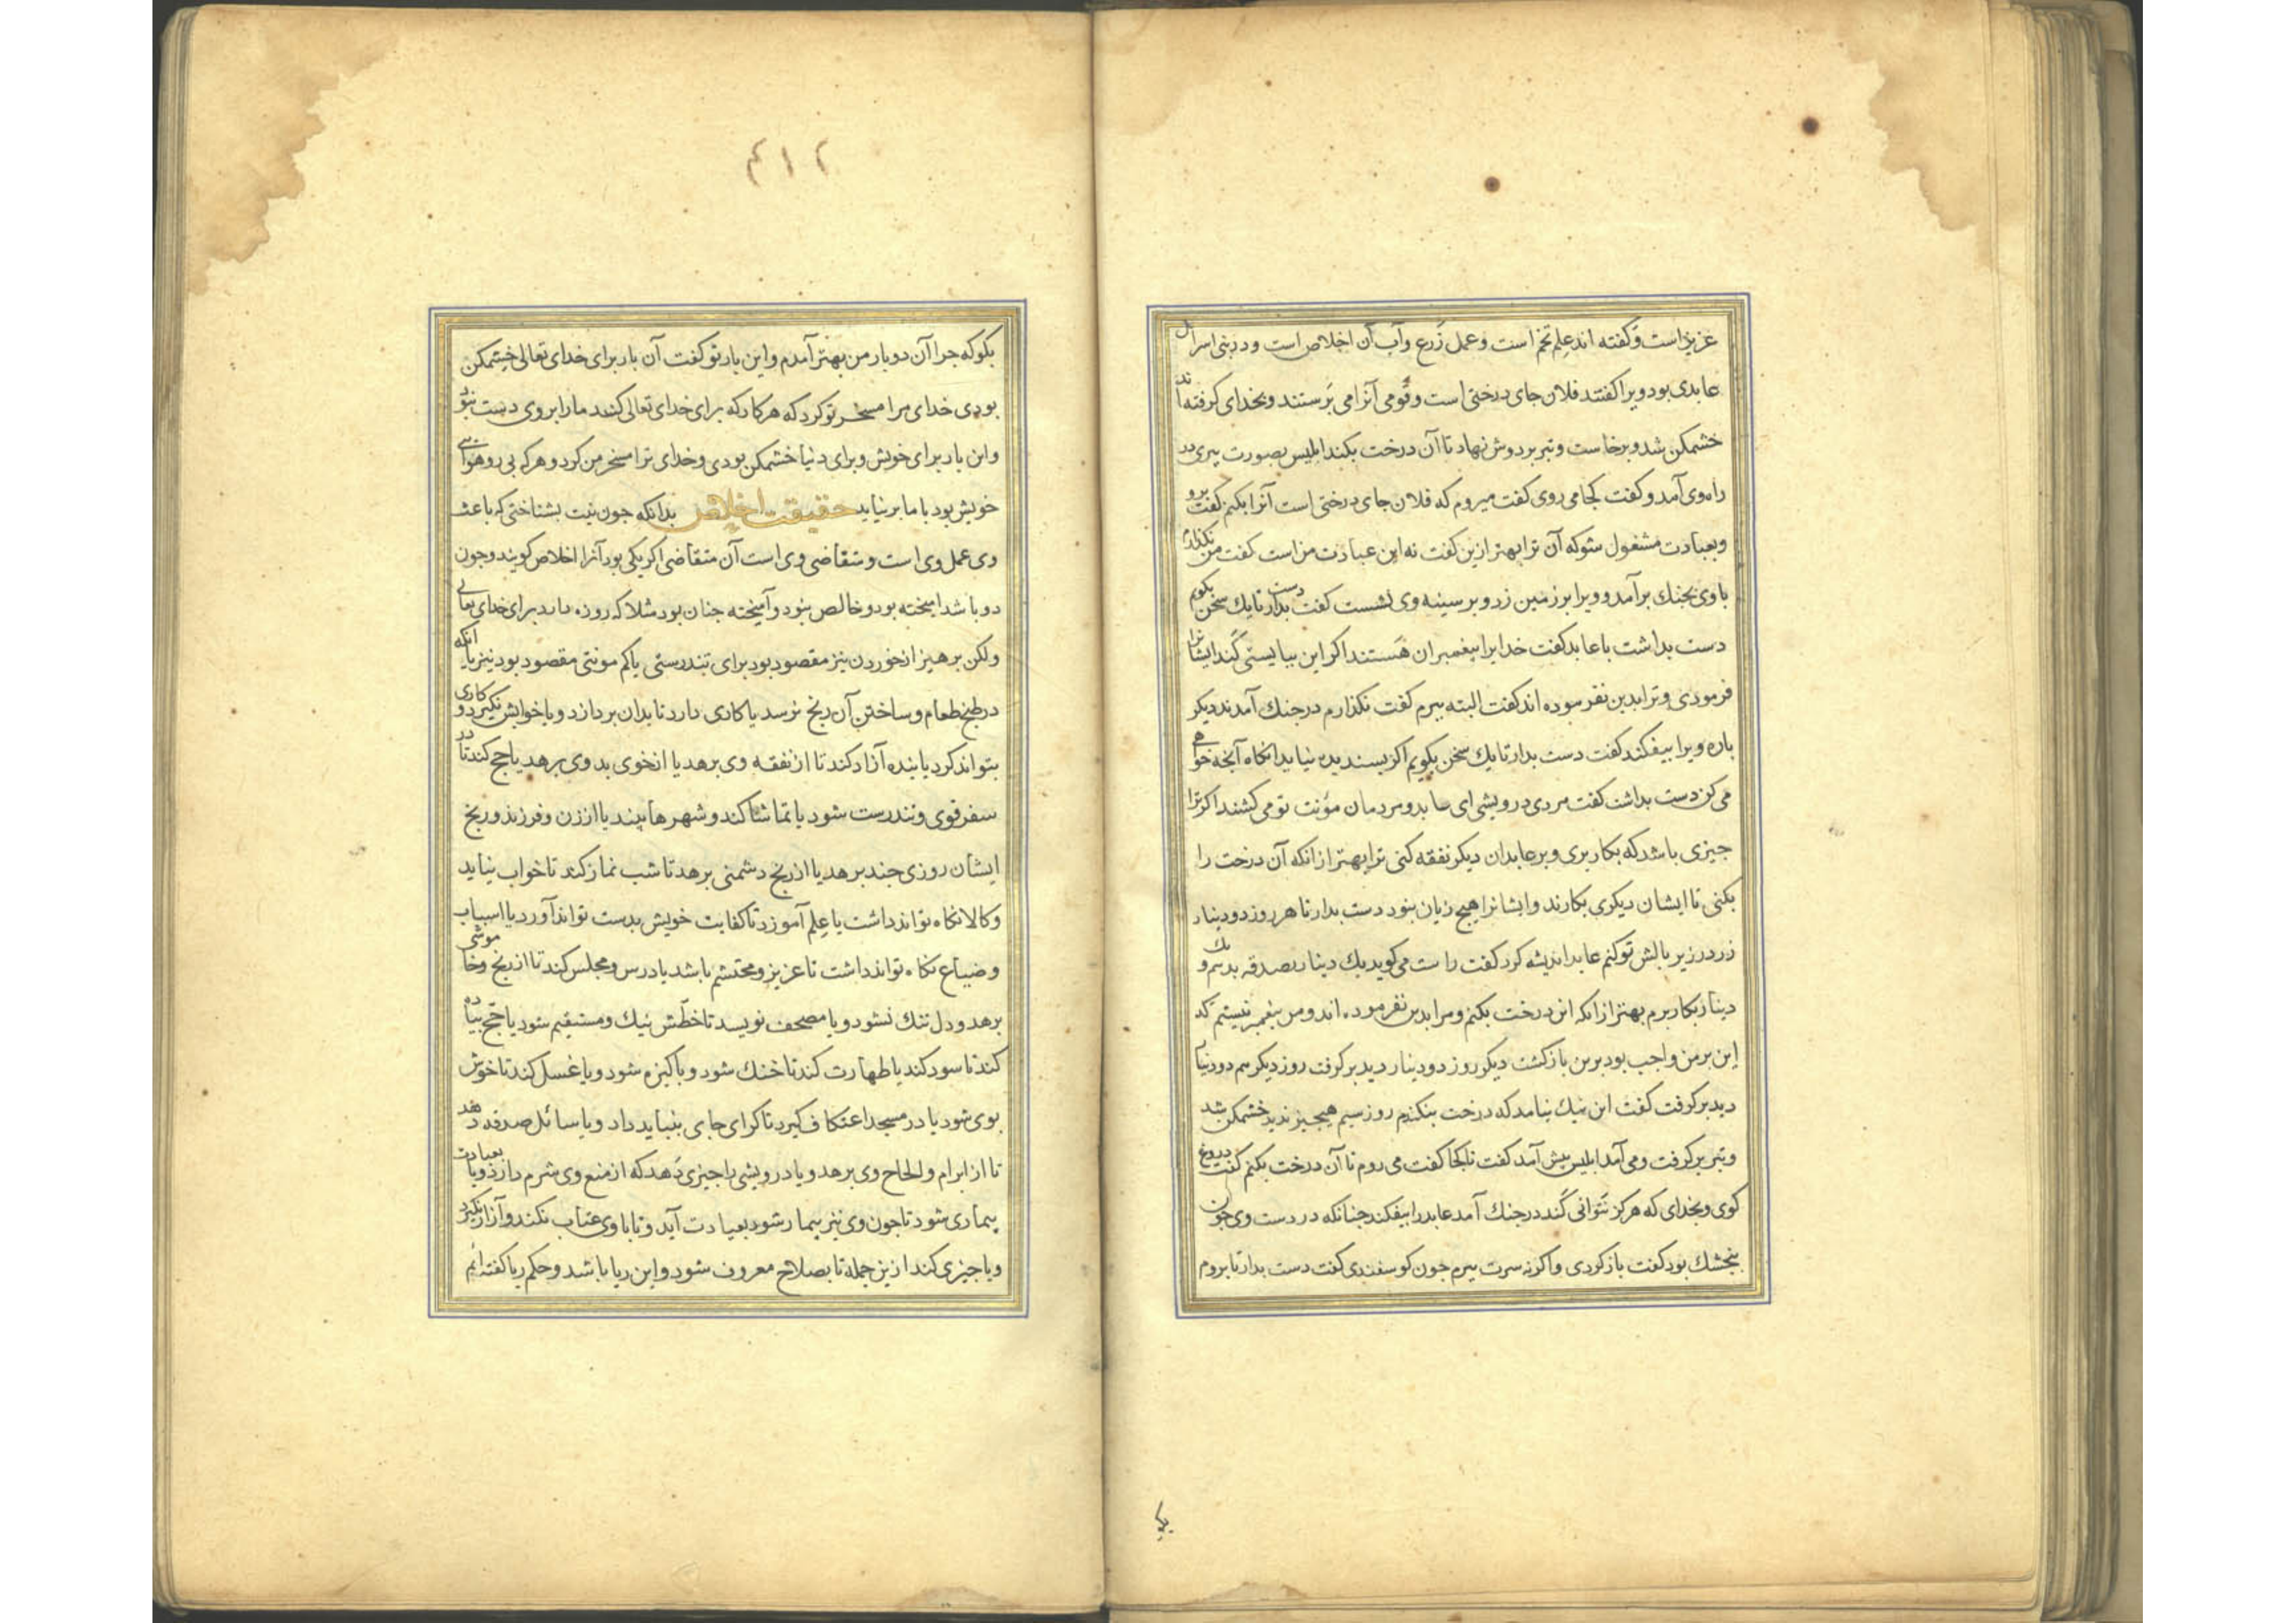 عزیزاست وکفته اند علم تخم است وعمل زرع وآب آن اخلاص است ودر بنی اسرایل
عابدی بود ویرا کفتند فلان جای درختی است وقومی آنرا می پرستند وبخدای کرفته اند
خشمکن شد وبرخاست وتبر بردوش نهاد تا آن درخت بکند ابلیس بصورت پیری در
راه وی آمد وکفت کجا می روی کفت میروم که فلان جای درختی است آنرا بکنم کفت برو
وبعبادت مشغول شو که آن ترا بهتر ازین کفت نه این عبادت من است کفت من نکذارم
با وی بجنك برآمد وویرا برزمین زد وبر سینه وی نشست کفت دست بدار تا یك سخن بکویم
دست بداشت با عابد کفت خدایرا پیغمبران هستند اکر این ببایستی کند ایشانرا
فرمودی وترا بدین نفرموده اند کفت البته ببرم کفت نکذارم درجنك آمدند دیکر
باره ویرا بیفکند کفت دست بدار تا یك سخن بکویم اکر پسندیده نیاید انکاه آنجه خواهی
می کن دست بداشت کفت مردی درویشی ای عابد ومردمان مؤنت تو می کشند اکر ترا
جیزی باشد که بکار بری وبر عابدان دیکر نفقه کنی ترا بهتر ازانکه آن درخت را
بکنی تا ایشان دیکری بکارند وایشانرا هیج زیان نبود دست بدار تا هر روز دو دینار
زر در زیر بالش تو کنم عابد اندیشه کرد کفت راست می کوید یك دینار بصدقه بدهم ویك
دینار بکار برم بهتر ازانکه این درخت بکنم ومرا بدین نفرموده اند ومن پیغمبر نیستم که
این بر من واجب بود برین بازکشت دیکر روز دو دینار دید برکرفت روز دیکر هم دو دینار
دید برکرفت کفت این نیك نیامد که درخت بنکندم روز سیم هیج جیز ندید خشمکن شد
وتبر برکرفت ومی آمد ابلیس پیش آمد کفت تا کجا کفت می روم تا آن درخت بکنم کفت دروغ
کوی وبخدای که هرکز نتوانی کند درجنك آمد عابد را بیفکند جنانکه در دست وی جون
بنجشك بود کفت بازکردی واکرنه سرت ببرم جون کوسفندی کفت دست بدار تا بروم
٤١٢
بکو که جرا آن دو بار من بهتر آمدم واین بار تو کفت آن بار برای خدای تعالی خشمکن
بودی خدای مرا مسخر تو کرد که هر کار که برای خدای تعالی کنند مارا بروی دست نبود
واین بار برای خویش وبرای دنیا خشمکن بودی وخدای ترا مسخر من کرد وهرکه پی رو هوای
خویش بود با ما برنیاید حقیقت اخلاص بدانکه جون نیت بشناختی که باعث
وی عمل وی است ومتقاضی وی است آن متقاضی اکر یکی بود آنرا اخلاص کویند وجون
دو باشد امیخته بود وخالص نبود وآمیخته جنان بود مثلا که روزه دارد برای خدای تعالی
ولکن پرهیز از خوردن نیز مقصود بود برای تندرستی یا کم مونتی مقصود بود نیز یا انکه
در طبخ طعام وساختن آن رنج نرسد یا کاری دارد تا بدان پردازد ویا خوابش نکیرد وکاری
بتواند کرد یا بنده آزاد کند تا از نفقه وی برهد یا ازخوی بد وی برهد یا حج کند تا در
سفر قوی وتندرست شود یا تماشا کند وشهرها بیند یا از زن وفرزند ورنج
ایشان روزی جند برهد یا از رنج دشمنی برهد تا شب نماز کند تا خواب نیاید
وکالا نکاه تواند داشت یا علم آموزد تا کفایت خویش بدست تواند آورد یا اسباب
وضیاع نکاه تواند داشت تا عزیز ومحتشم باشد یا درس ومجلس کند تا از رنج وخاموشی
برهد ودل تنك نشود ویا مصحف نویسد تا خطش نیك ومستقیم شود یا حج پیاده
کند تا سود کند یا طهارت کند تا خنك شود وپاکیزه شود ویا غسل کند تا خوش
بوی شود یا در مسجد اعتکاف کیرد تا کرای جای بنباید داد ویا سائل صدقه دهد
تا از ابرام والحاح وی برهد ویا درویشی را جیزی دهد که از منع وی شرم دارد ویا بعیادت
بیماری شود تا جون وی نیز بیمار شود بعیادت آید وتا با وی عتاب نکند وآزار نکیرد
ویا جیزی کند ازین جمله تا بصلاح معروف شود واین ریا باشد وحکم ریا کفته ایم